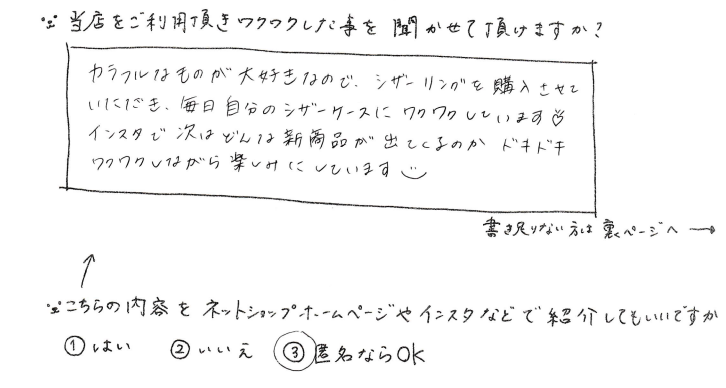 ※当店をご利用頂きワクワクした事を聞かせて頂けますか?
カラフルなものが大好きなので、シザーリングを購入させて
いただき、毎日自分のシザーケースにワクワクしています♡
インスタで次はどんな新商品が出てくるのかドキドキ
ワクワクしながら楽しみにしています
書き足りない方は裏ページへ→
↑
※こちらの内容をネットショップホームページやインスタなどで紹介してもいいですか
①はい ②いいえ ③匿名ならOK